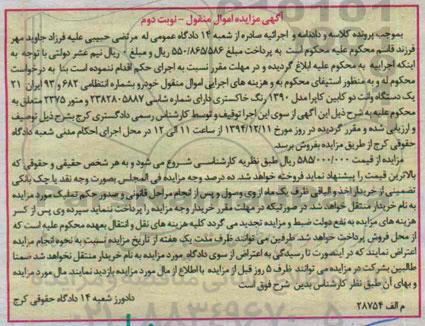 آگهی مزایده اموال منقول - نوبت دوم
بموجب پرونده کلاسه و دادنامه و اجرائیه صادره از شعبه ۱۴ دادگاه عمومی له مرتضی حبیبی علیه فرزاد جاوید مهر
فرزند قاسم محکوم علیه محکوم است به پرداخت مبلغ ۵۵۰/۸۶۵/۵۸۶ ریال و مبلغ ۰ ریال نیم عشر دولتی با توجه به
اینکه اجراییه به محکوم علیه ابلاغ گردیده و در مهلت مقرر نسبت به اجرای حکم اقدام ننموده است بنا به درخواست
محکوم له و به منظور استیفای محکوم به و هزینه های اجرایی اموال منقول خودرو بشماره انتظامی ۶۸۲ و ۹۳ ایران ۲۱
یک دستگاه وانت دو کابین کاپرا مدل ۱۳۹۰ رنگ خاکستری دارای شماره شاسی ۲۳۸۲۰۵۸۸۷ و متور ۲۳۷۵ متعلق به
محکوم علیه به شرح ذیل این آگهی از سوی این اجرا توقیف و توسط کارشناس رسمی دادگستری کرج بشرح ذیل توصیف
و ارزیابی شده و مقرر گردیده در روز مورخ ۱۳۹۴/۱۲/۱۱ از ساعت ۱۱ الی ۱۲ در محل اجرای احکام مدنی شعبه دادگاه
حقوقی کرج از طریق مزایده بفروش برسد.
مزایده از قیمت ۵۸۵/۰۰۰/۰۰۰ ریال طبق نظریه کارشناسی شروع می شود و به هر شخص حقیقی و حقوقی که
بالاترین قیمت را پیشنهاد نماید فروخته خواهد شد. ده درصد وجه مزایده فی المجلس بصورت وجه نقد یا چک بانکی
تضمینی از خریدار اخذ و الباقی ظرف یک ماه از وی وصول و پس از انجام مراحل قانونی و صدور حکم تملیک مورد مزایده
به نام خریدار منتقل خواهد شد. در صورتیکه در مهلت مقرر خریدار وجه مزایده را پرداخت ننماید سپرده وی پس از کسر
هزینه های مزایده به نفع دولت ضبط و مزایده تجدید می گردد کلیه هزینه های نقل و انتقال بعهده محکوم علیه است که
از محل فروش پرداخت خواهد شد. طرفین می توانند ظرف مدت یک هفته از تاریخ مزایده نسبت به نحوه انجام مزایده
اعتراض نمایند که در اینصورت تا رسیدگی به اعتراض از سوی دادگاه مورد مزایده به نام خریدار منتقل نخواهد شد ضمنا
طالبین بشرکت در مزایده می توانند ظرف ۵ روز قبل از مزایده با اطلاع از مال مورد مزایده بازدید نمایند. مال مورد مزایده
و بهای آن طبق نظر کارشناس بدین شرح فوق است
دادورز شعبه ۱۴ دادگاه حقوقی کرج
م الف ۲۸۷۵۴